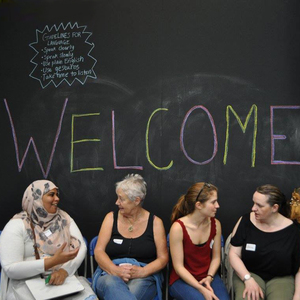 GUIDELINES FOR
LANGUAGE
- Speak clearly
- Speak slowly
- Use plain English
- Use gestures
Take time to listen
WELCOME